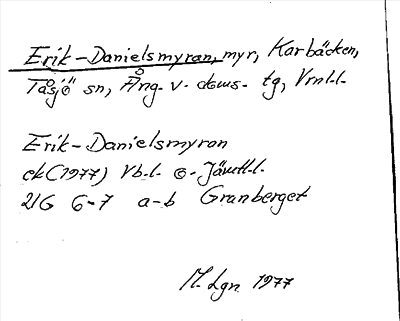 Erik-Danielsmyran, myr, Karbäcken,
Tåsjö sn, Ång. v. doms. tg, Vrnl.l.
Erik-Danielsmyran
ek (1977) Vb.l. o. Jämtl.l.
21G 6-7 a-b Granberget
M. Lgn 1977